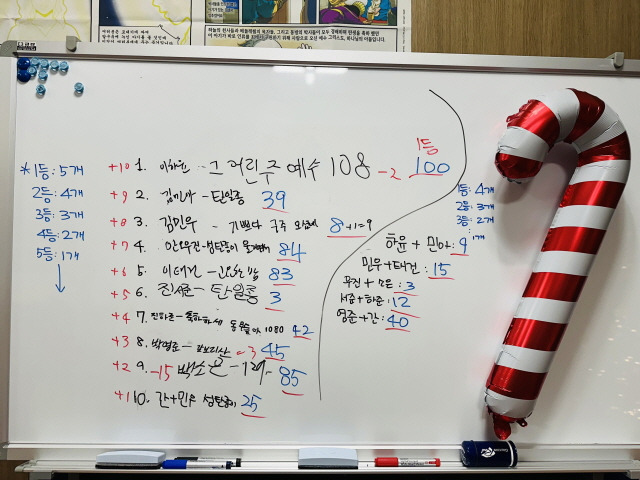 * 1등: 5개
2등: 4개
3등: 3개
4등: 2개
5등: 1개
+10 1. 이하윤 - 그 어린 주 예수 108 -2 100
1등
+9 2. 김민아 - 탄일종 39
+8 3. 김민우 - 기쁘다 구주 오셨네 8+1=9
+7 4. 84
+6 5. 이태건 - 고요한 밤 83
+5 6. 진서준 - 탄일종 3
+4 7. 진하준 - 축하하세 1080 42
+3 8. 박영준 - -3 45
+2 9. -15 백소은 - 85
+1 10. 간+민우 성탄종이 25
1등: 4개
2등: 3개
3등: 2개
1개
하윤 + 민아: 9
민우+태건: 15
우진 + 소은: 3
서준+하준: 12
영준+간: 40